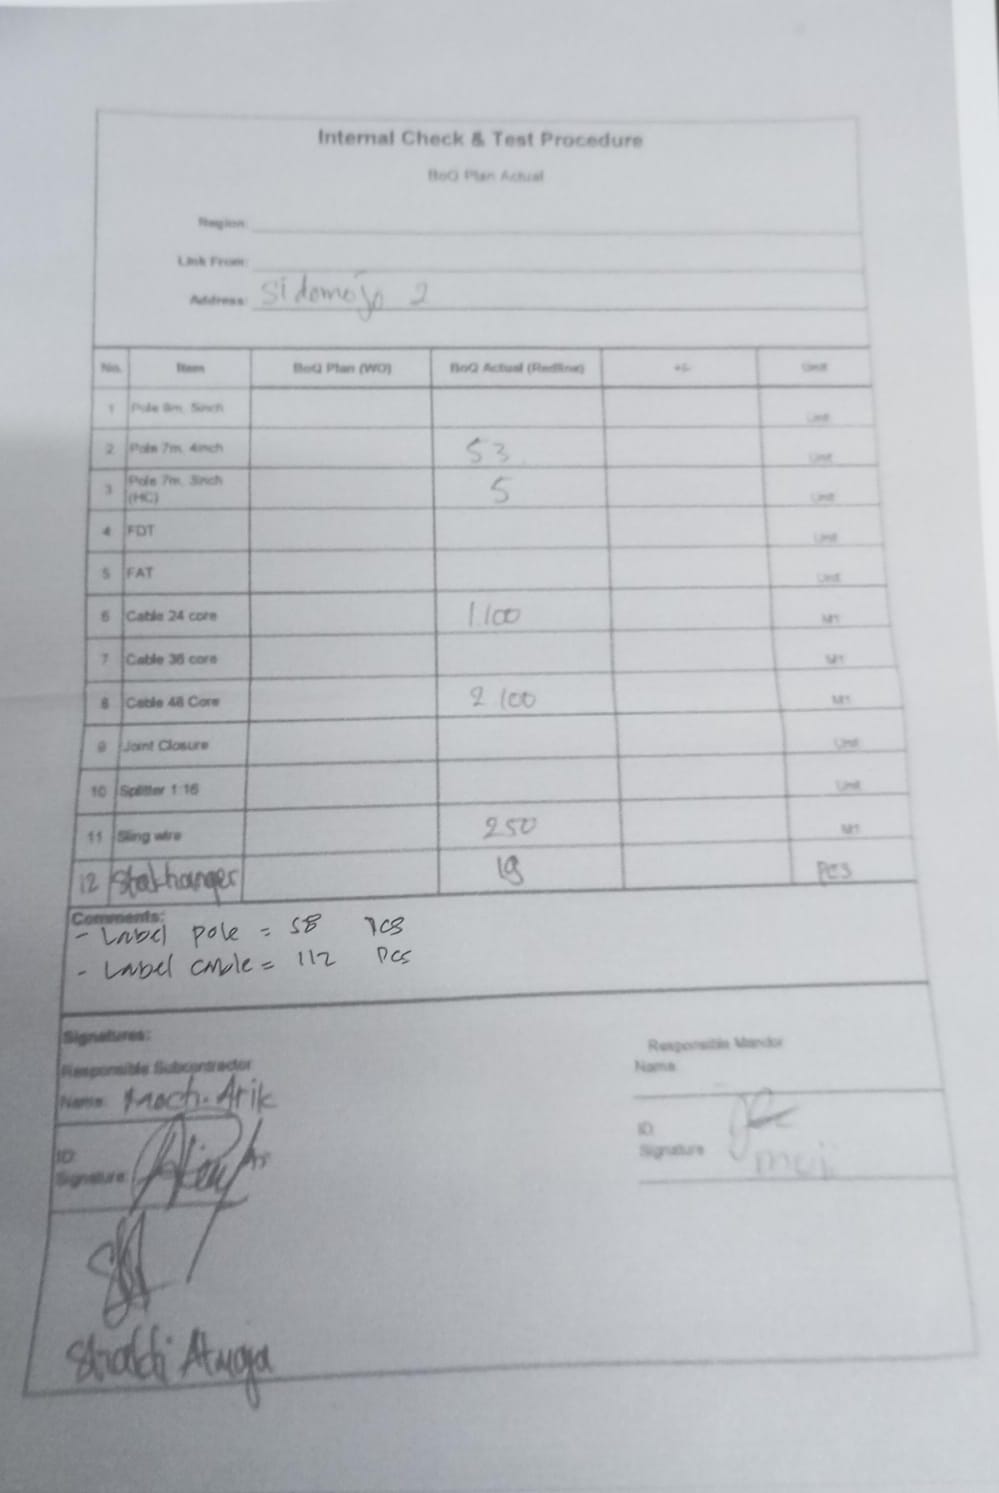 Internal Check & Test Procedure
BoQ Plan Actual
Region:
Link From:
Address: Sidomojo 2
No. Item BoQ Plan (WO) BoQ Actual (Redline) +/- Unit
1 Pole 9m, 5inch Unit
2 Pole 7m, 4inch 53 Unit
3 Pole 7m, 3inch (HC) 5 Unit
4 FDT Unit
5 FAT Unit
6 Cable 24 core 1.100 M1
7 Cable 36 core M1
8 Cable 48 Core 2 100 M1
9 Joint Closure Unit
10 Splitter 1:16 Unit
11 Sling wire 250 M1
12 Pcs
Comments:
- Label pole = 58 Pcs
- Label cable = 112 Pcs
Signatures:
Responsible Subcontractor
Name: Moch. Arik
ID:
Signature:
Responsible Mandor
Name:
ID:
Signature